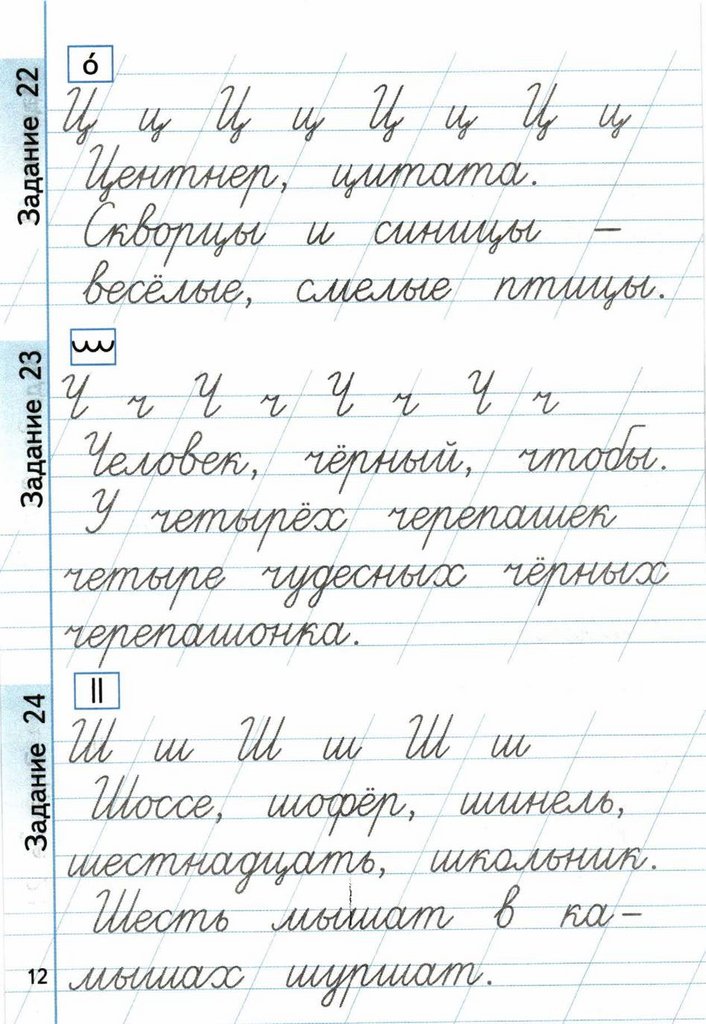 Задание 22
ó
Ц ц Ц ц Ц ц Ц ц
Центнер, цитата.
Скворцы и синицы –
весёлые, смелые птицы.
Задание 23
Ч ч Ч ч Ч ч Ч ч
Человек, чёрный, чтобы.
У четырёх черепашек
четыре чудесных чёрных
черепашонка.
Задание 24
Ш ш Ш ш Ш ш
Шоссе, шофёр, шинель,
шестнадцать, школьник.
Шесть мышат в ка-
мышах шуршат.
12